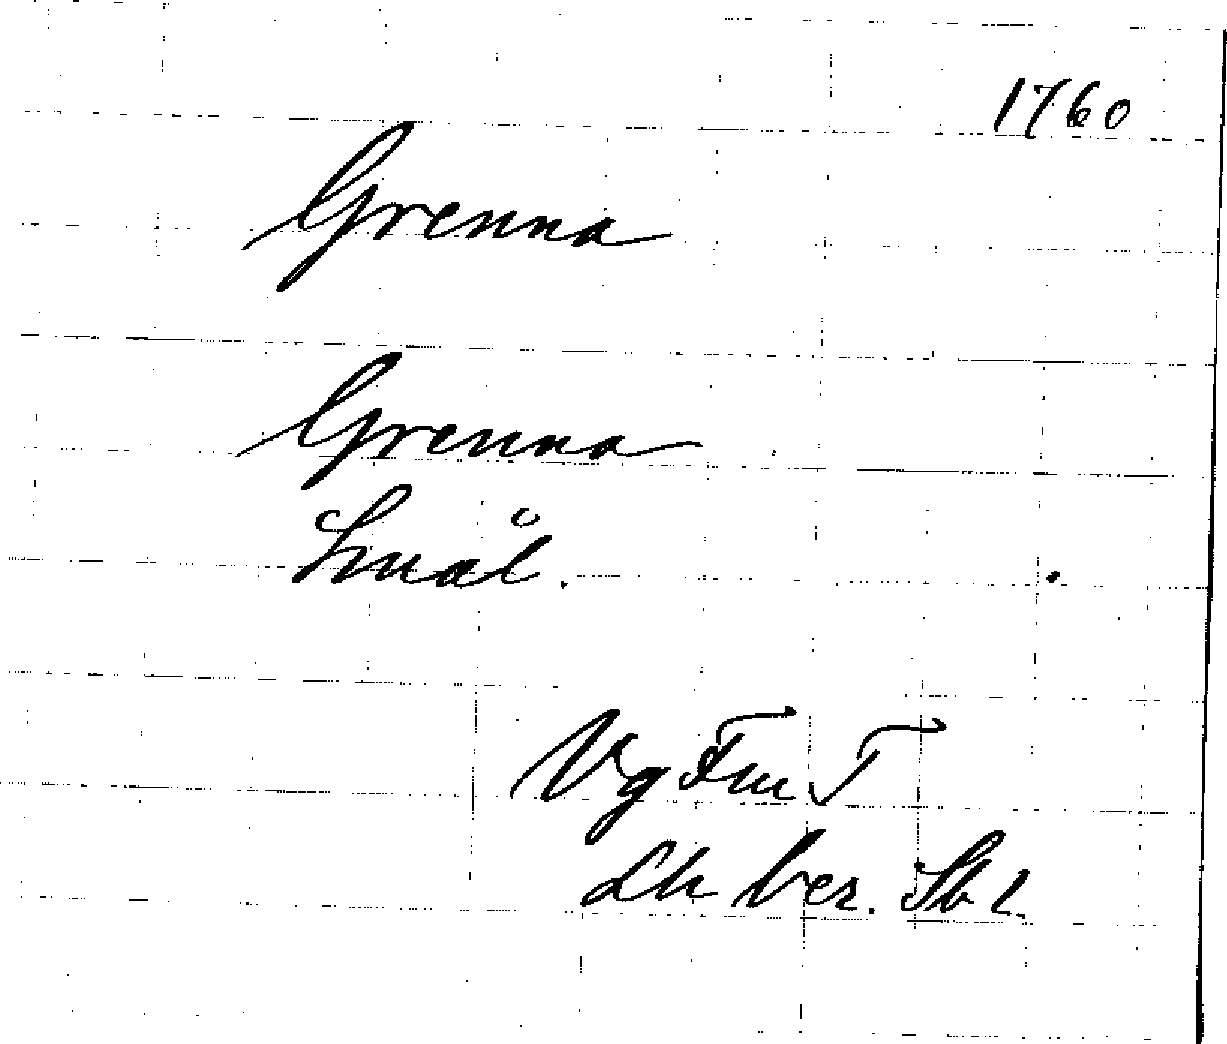 1760
Grenna
Grenna
Smål.
Vg Fm T
Lh ber. Sb 1.